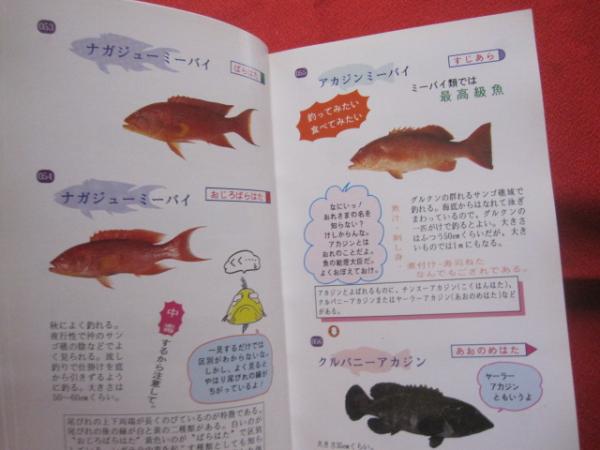 053
ナガジューミーバイ
ばらはた
054
ナガジューミーバイ
おじろばらはた
くく…
中毒するから注意して。
秋によく釣れる。
夜行性で沖のサン
ゴ礁の陰などでよ
く見られる。流し
釣りで仕掛を底
から引きずるよう
に釣る。大きさは
50〜60㎝くらい。
一見するだけでは
区別がわからないな。
しかし、よく見ると
やはり尾びれの縁が
ちがっているよ!
尾びれの上下両端が長くのびているのが特徴である。
尾びれの後の縁が白と黄の二種類がある。白いのが
"おじろばらはた" 黄たいのが "ばらはた" で区別
055
アカジンミーバイ
すじあら
ミーバイ類では
最高級魚
釣ってみたい
食べてみたい
なにいっ!
おれさまの名を
知らない?
けしからんな。
アカジンとは
おれのことだよ。
魚の総理大臣だ。
よくおぼえておけ。
グルクンの群れるサンゴ礁域で
釣れる。海底からはなれて泳ぎ
まわっているので、グルクンの
一匹がけで釣るとよい。大きさ
はふつう50㎝くらいだが、大き
いものでは1mにもなる。
煮汁・刺し身・
煮付け・寿司ねた
なんでもござれである。
アカジンとよばれるものに、チンスーアカジン(こくはんはた)、
クルバニーアカジンまたはヤーラーアカジン(あおのめはた)など
がある。
056
クルバニーアカジン
あおのめはた
ヤーラー
アカジン
ともいうよ
大きさ35㎝くらい。